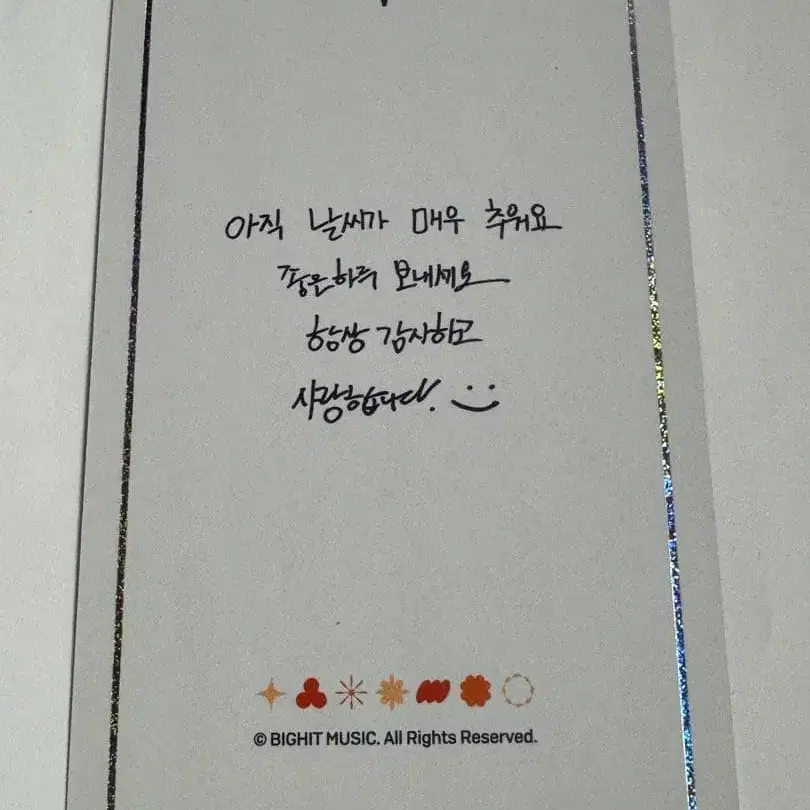 아직 날씨가 매우 추워요
좋은하루 보내세요
항상 감사하고
사랑합니다.
© BIGHIT MUSIC. All Rights Reserved.